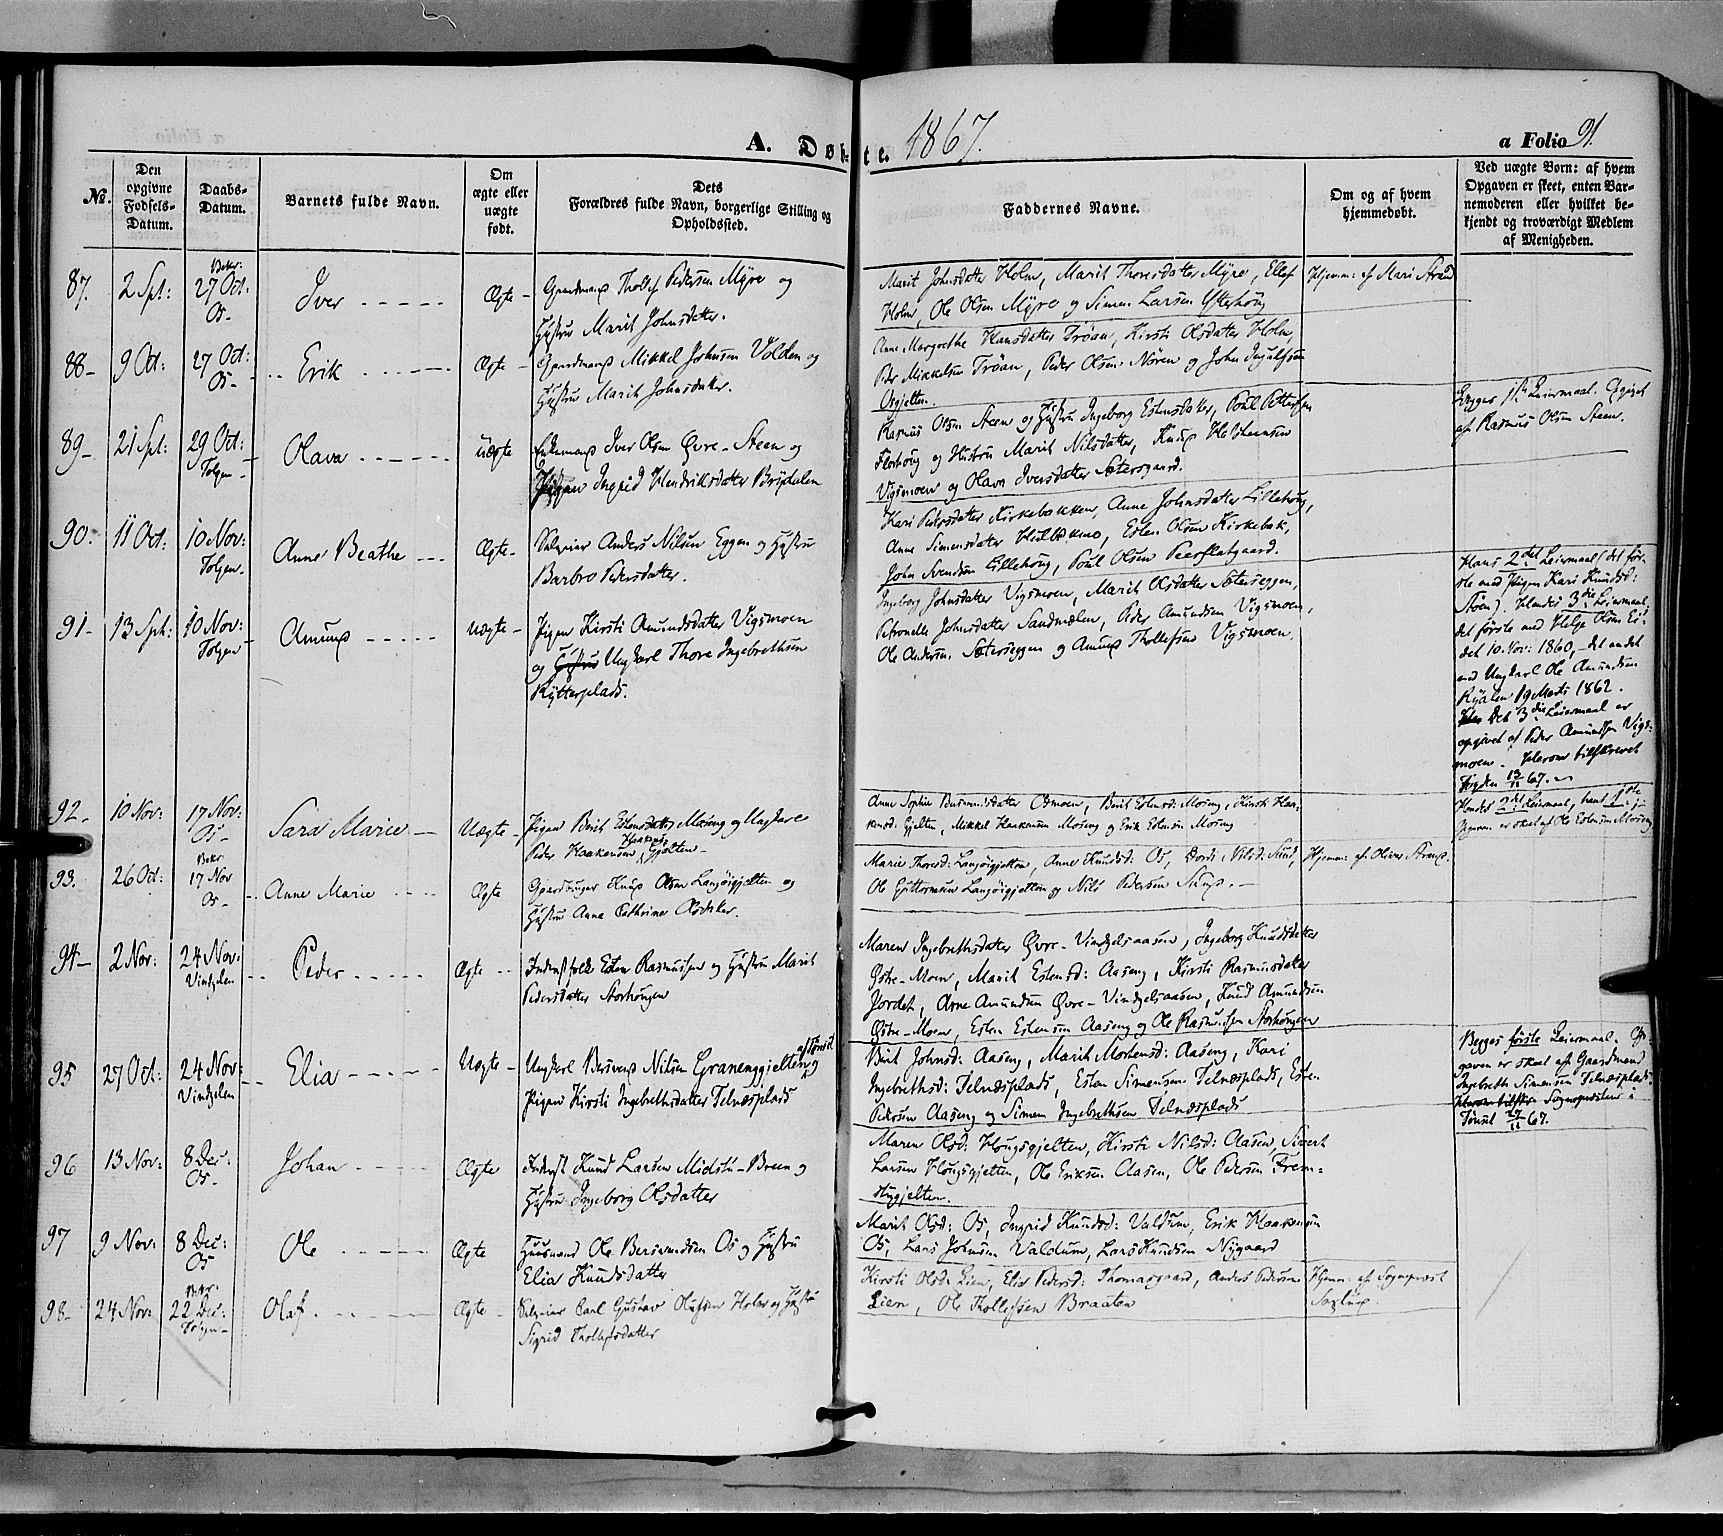 A. Døbte. 1867.
a Folio 91.
No.
Den opgivne Fødsels-Datum.
Daabs-Datum.
Barnets fulde Navn.
Om ægte eller uægte født.
Dets Forældres fulde Navn, borgerlige Stilling og Opholdssted.
Faddernes Navne.
Om og af hvem hjemmedøbt.
Ved uægte Børn: af hvem Opgaven er skeet, enten Barnemoderen eller hvilket bekjendt og troværdigt Medlem af Menigheden.
87. 2 Spt: Bekr: 27 Oct: Os- Iver Ægte-
Gaardmand Thollef Pedersen Myre og
Hustru Marit Johnsdatter.
Marit Johnsdatter Holm, Marit Thoresdatter Myre, Ellef
Holm, Ole Olsen Myre og Simen Larsen Ytterhoug
Hjemm: af Mari Strand
88- 9 Oct: 27 Oct: Os- Erik Ægte-
Gaardmand Mikkel Johnsen Volden og
Hustru Marit Johnsdatter.
Anne Margrethe Hansdatter Trøan, Kirsti Olsdatter Holm,
Peder Mikkelsen Trøan, Peder Olsen Nøren og John Ingulfsen
Osgjelten.
89- 21 Spt: 29 Oct: Tolgen- Olava Uægte
Enkemand Iver Olsen Øvre-Steen og
Pigen Ingrid Hendriksdatter Brydalen
Rasmus Olsen Steen og Hustru Ingeborg Estensdatter, Poul Pettersen
Florhoug og Hustru Marit Nilsdatter, Knud
Vigsmoen og Olava Iversdatter Sætersgaard.
Begges 1ste Leiermaal. Opgivet
af Rasmus Olsen Steen.
90- 11 Oct: 10 Nov: Tolgen- Anne Beathe Ægte-
Selveier Anders Nilsen Eggen og Hustru
Barbro Pedersdatter.
Kari Pedersdatter Kirkebakken, Anne Johnsdatter Lillehoug,
Anne Simensdatter Esten Olsen Kirkebak,
John Svendsen Lillehoug, Poul Olsen
91- 13 Spt: 10 Nov: Tolgen Amund Uægte-
Pigen Kirsti Amundsdatter Vigsmoen
og Hustru Ungkarl Thore Ingebrethsen
Rytterplads.
Ingeborg Johnsdatter Vigsmoen, Marit Olsdatter Sæterseggen,
Petronelle Johnsdatter Sandmælen, Peder Amundsen Vigsmoen,
Ole Andersen Sæterseggen og Amund Thollefsen Vigsmoen.
Hans 2det Leiermaal (det første
med Pigen Kari Knudsd:
Støen). Hendes 3die Leiermaal,
det første med Helge Olsen
det 10 Nov: 1860, - det andet
med Ungkarl Ole Amundsen
19 Marts 1862.
Det 3die Leiermaal er
opgivet af Peder Amundsen Vigsmoen.
Herom tilskrevet
Fogden 13/11 67.
92- 10 Nov: 17 Nov: Os- Sara Marie Uægte-
Pigen Berit Estensdatter Moseng og Ungkarl
Peder Haakensen Gjelten-
Anne Sophie Osmoen, Berit Estensd: Moseng, Kirsti Haakensd:
Gjelten, Mikkel Haakensen Moseng og Erik Estensen Moseng
Hendes 2det Leiermaal, hans 1ste
Opgaven er skeet af Ole Estensen Moseng
93. 26 Oct: Bekr: 17 Nov Os- Anne Marie Ægte
Gaardbruger Knud Olsen Langøigjelten og
Hustru Anne Cathrine Olsdatter.
Marie Thoresd: Langøigjelten, Anne Knudsd: Os, Dordi Nilsd: Sund,
Ole Guttormsen Langøigjelten og Nils Pedersen Sund.
Hjemm: af Oliver Strand.
94- 2 Nov: 24 Nov: Vindgelen Peder Ægte
Inderstfolk Esten Rasmussen og Hustru Marit
Pedersdatter Storhougen
Maren Ingebrethsdatter Øvre-Vindgelsaasen, Ingeborg Knudsdatter
Østre-Moen, Marit Estensd: Aaseng, Kirsti Rasmusdatter
Jordet, Arne Amundsen Øvre-Vindgelsaasen, Knud Amundsen
Østre-Moen, Esten Estensen Aaseng og Ole Rasmussen Storhougen
95 27 Oct: 24 Nov: Vindgelen Elia Uægte-
Ungkarl Bersvend Nilsen Graneng­gjelten af Tønset og
Pigen Kirsti Ingebrethsdatter Telneesplads
Berit Johnsd: Aaseng, Marit Mortensd: Aaseng, Kari
Ingebrethsd: Telneesplads, Esten Simensen Telneesplads, Esten
Pedersen Aaseng og Simen Ingebrethsen Telneesplads
Begges første Leiermaal. Opgaven
er skeet af Gaardmand
Ingebreth Simensen Telneesplads.
Herom tilskr: Sognepræsten i
Tønset 27/11 67.
96 13 Nov: 8 Dec: Os- Johan Ægte
Inderst Knud Larsen Midtstu-Breen og
Hustru Ingeborg Olsdatter
Maren Olsd: Hougsgjelten, Kirsti Nilsd: Aasen, Sivert
Larsen Hougsgjelten, Ole Eriksen Aasen, Ole Pedersen Fremstugjelten.
97 9 Nov: 8 Dec: Os Ole Ægte
Huusmand Ole Bersvendsen Os og Hustru
Elia Knudsdatter
Marit Olsd: Os, Ingrid Knudsd: Valdum, Erik Haakensen
Os, Lars Johnsen Valdum, Lars Knudsen Nygaard
98- 24 Nov: Bekr: 22 Dec: Tolgen- Olaf Ægte
Selveier Carl Gustav Olufsen Holm og Hustru
Sigrid Thollefsdatter
Kirsti Olsd: Lien, Elia Pedersd: Thomasgaard, Anders Pedersen
Lien, Ole Thollefsen Braaten
Hjemm: af Sognepræst